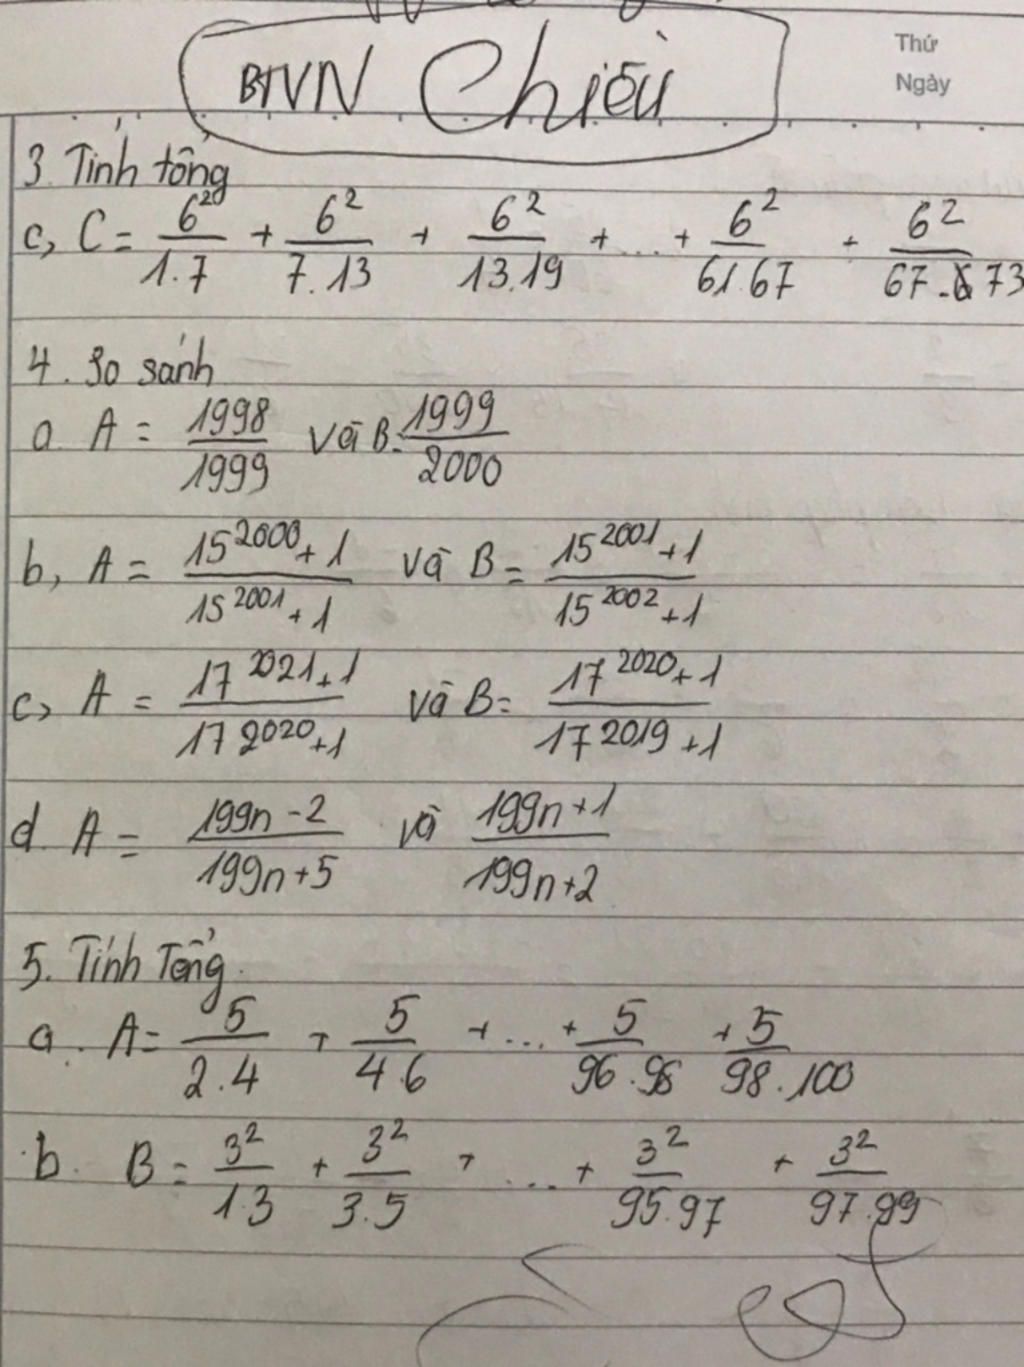 Thứ
Ngày
BTVN Chiều
3. Tính tổng
c, C = 6²/1.7 + 6²/7.13 + 6²/13.19 + ... + 6²/61.67 + 6²/67.73
4. So sánh
a. A = 1998/1999 và B = 1999/2000
b, A = (15²⁰⁰⁰ + 1)/(15²⁰⁰¹ + 1) và B = (15²⁰⁰¹ + 1)/(15²⁰⁰² + 1)
c, A = (17²⁰²¹ + 1)/(17²⁰²⁰ + 1) và B = (17²⁰²⁰ + 1)/(17²⁰¹⁹ + 1)
d. A = (199n - 2)/(199n + 5) và (199n + 1)/(199n + 2)
5. Tính Tổng.
a. A = 5/2.4 + 5/4.6 + ... + 5/96.98 + 5/98.100
b. B = 3²/1.3 + 3²/3.5 + ... + 3²/95.97 + 3²/97.99